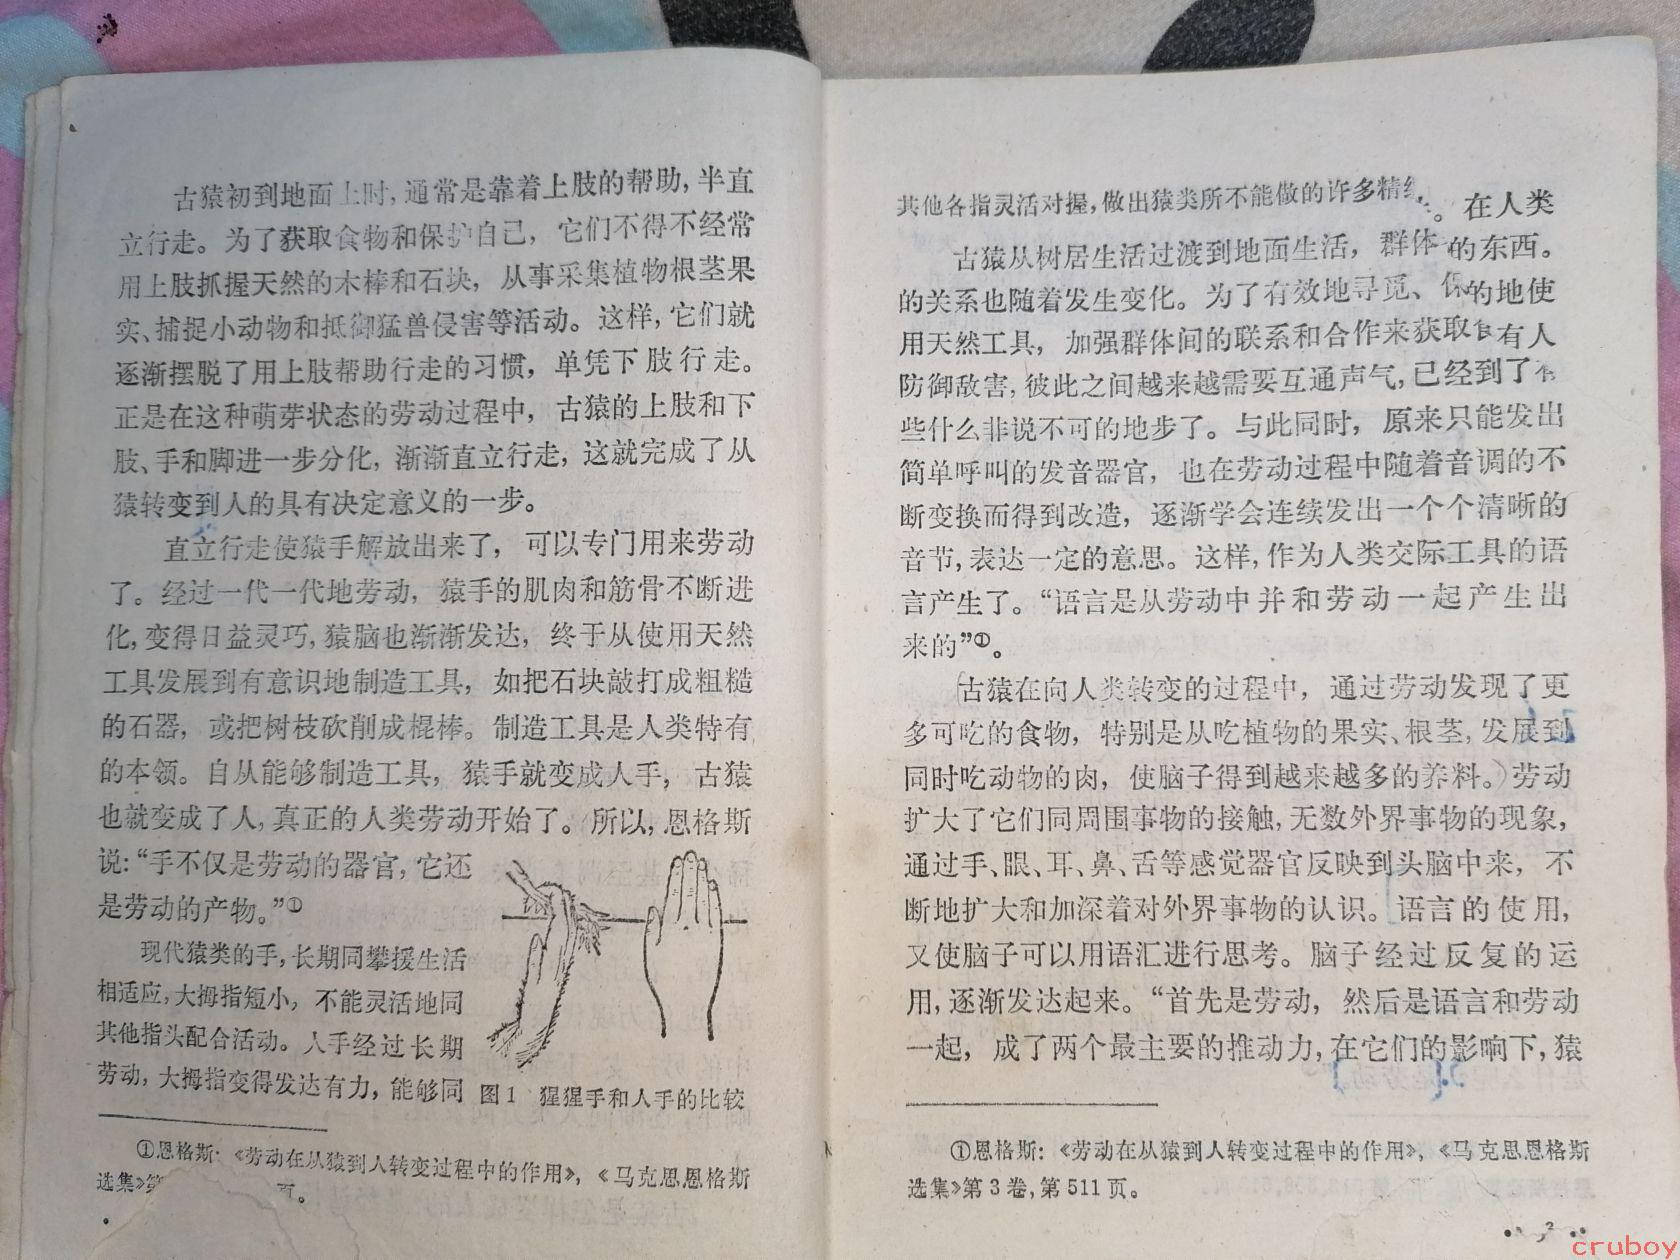 古猿初到地面上时，通常是靠着上肢的帮助，半直
立行走。为了获取食物和保护自己，它们不得不经常
用上肢抓握天然的木棒和石块，从事采集植物根茎果
实、捕捉小动物和抵御猛兽侵害等活动。这样，它们就
逐渐摆脱了用上肢帮助行走的习惯，单凭下肢行走。
正是在这种萌芽状态的劳动过程中，古猿的上肢和下
肢、手和脚进一步分化，渐渐直立行走，这就完成了从
猿转变到人的具有决定意义的一步。
直立行走使猿手解放出来了，可以专门用来劳动
了。经过一代一代地劳动，猿手的肌肉和筋骨不断进
化，变得日益灵巧，猿脑也渐渐发达，终于从使用天然
工具发展到有意识地制造工具，如把石块敲打成粗糙
的石器，或把树枝砍削成棍棒。制造工具是人类特有
的本领。自从能够制造工具，猿手就变成人手，古猿
也就变成了人，真正的人类劳动开始了。所以，恩格斯
说：“手不仅是劳动的器官，它还
是劳动的产物。”①
现代猿类的手，长期同攀援生活
相适应，大拇指短小，不能灵活地同
其他指头配合活动。人手经过长期
劳动，大拇指变得发达有力，能够同
图1 猩猩手和人手的比较
①恩格斯：《劳动在从猿到人转变过程中的作用》，《马克思恩格斯
选集》第 页。
其他各指灵活对握，做出猿类所不能做的许多精 。在人类
古猿从树居生活过渡到地面生活，群体 的东西。
的关系也随着发生变化。为了有效地寻觅、保 的地使
用天然工具，加强群体间的联系和合作来获取食 有人
防御敌害，彼此之间越来越需要互通声气，已经到了有
些什么非说不可的地步了。与此同时，原来只能发出
简单呼叫的发音器官，也在劳动过程中随着音调的不
断变换而得到改造，逐渐学会连续发出一个个清晰的
音节，表达一定的意思。这样，作为人类交际工具的语
言产生了。“语言是从劳动中并和劳动一起产生出
来的”①。
古猿在向人类转变的过程中，通过劳动发现了更
多可吃的食物，特别是从吃植物的果实、根茎，发展到
同时吃动物的肉，使脑子得到越来越多的养料。）劳动
扩大了它们同周围事物的接触，无数外界事物的现象，
通过手、眼、耳、鼻、舌等感觉器官反映到头脑中来，不
断地扩大和加深着对外界事物的认识。语言的使用，
又使脑子可以用语汇进行思考。脑子经过反复的运
用，逐渐发达起来。“首先是劳动，然后是语言和劳动
一起，成了两个最主要的推动力，在它们的影响下，猿
①恩格斯：《劳动在从猿到人转变过程中的作用》，《马克思恩格斯
选集》第3卷，第511页。
2
cruboy